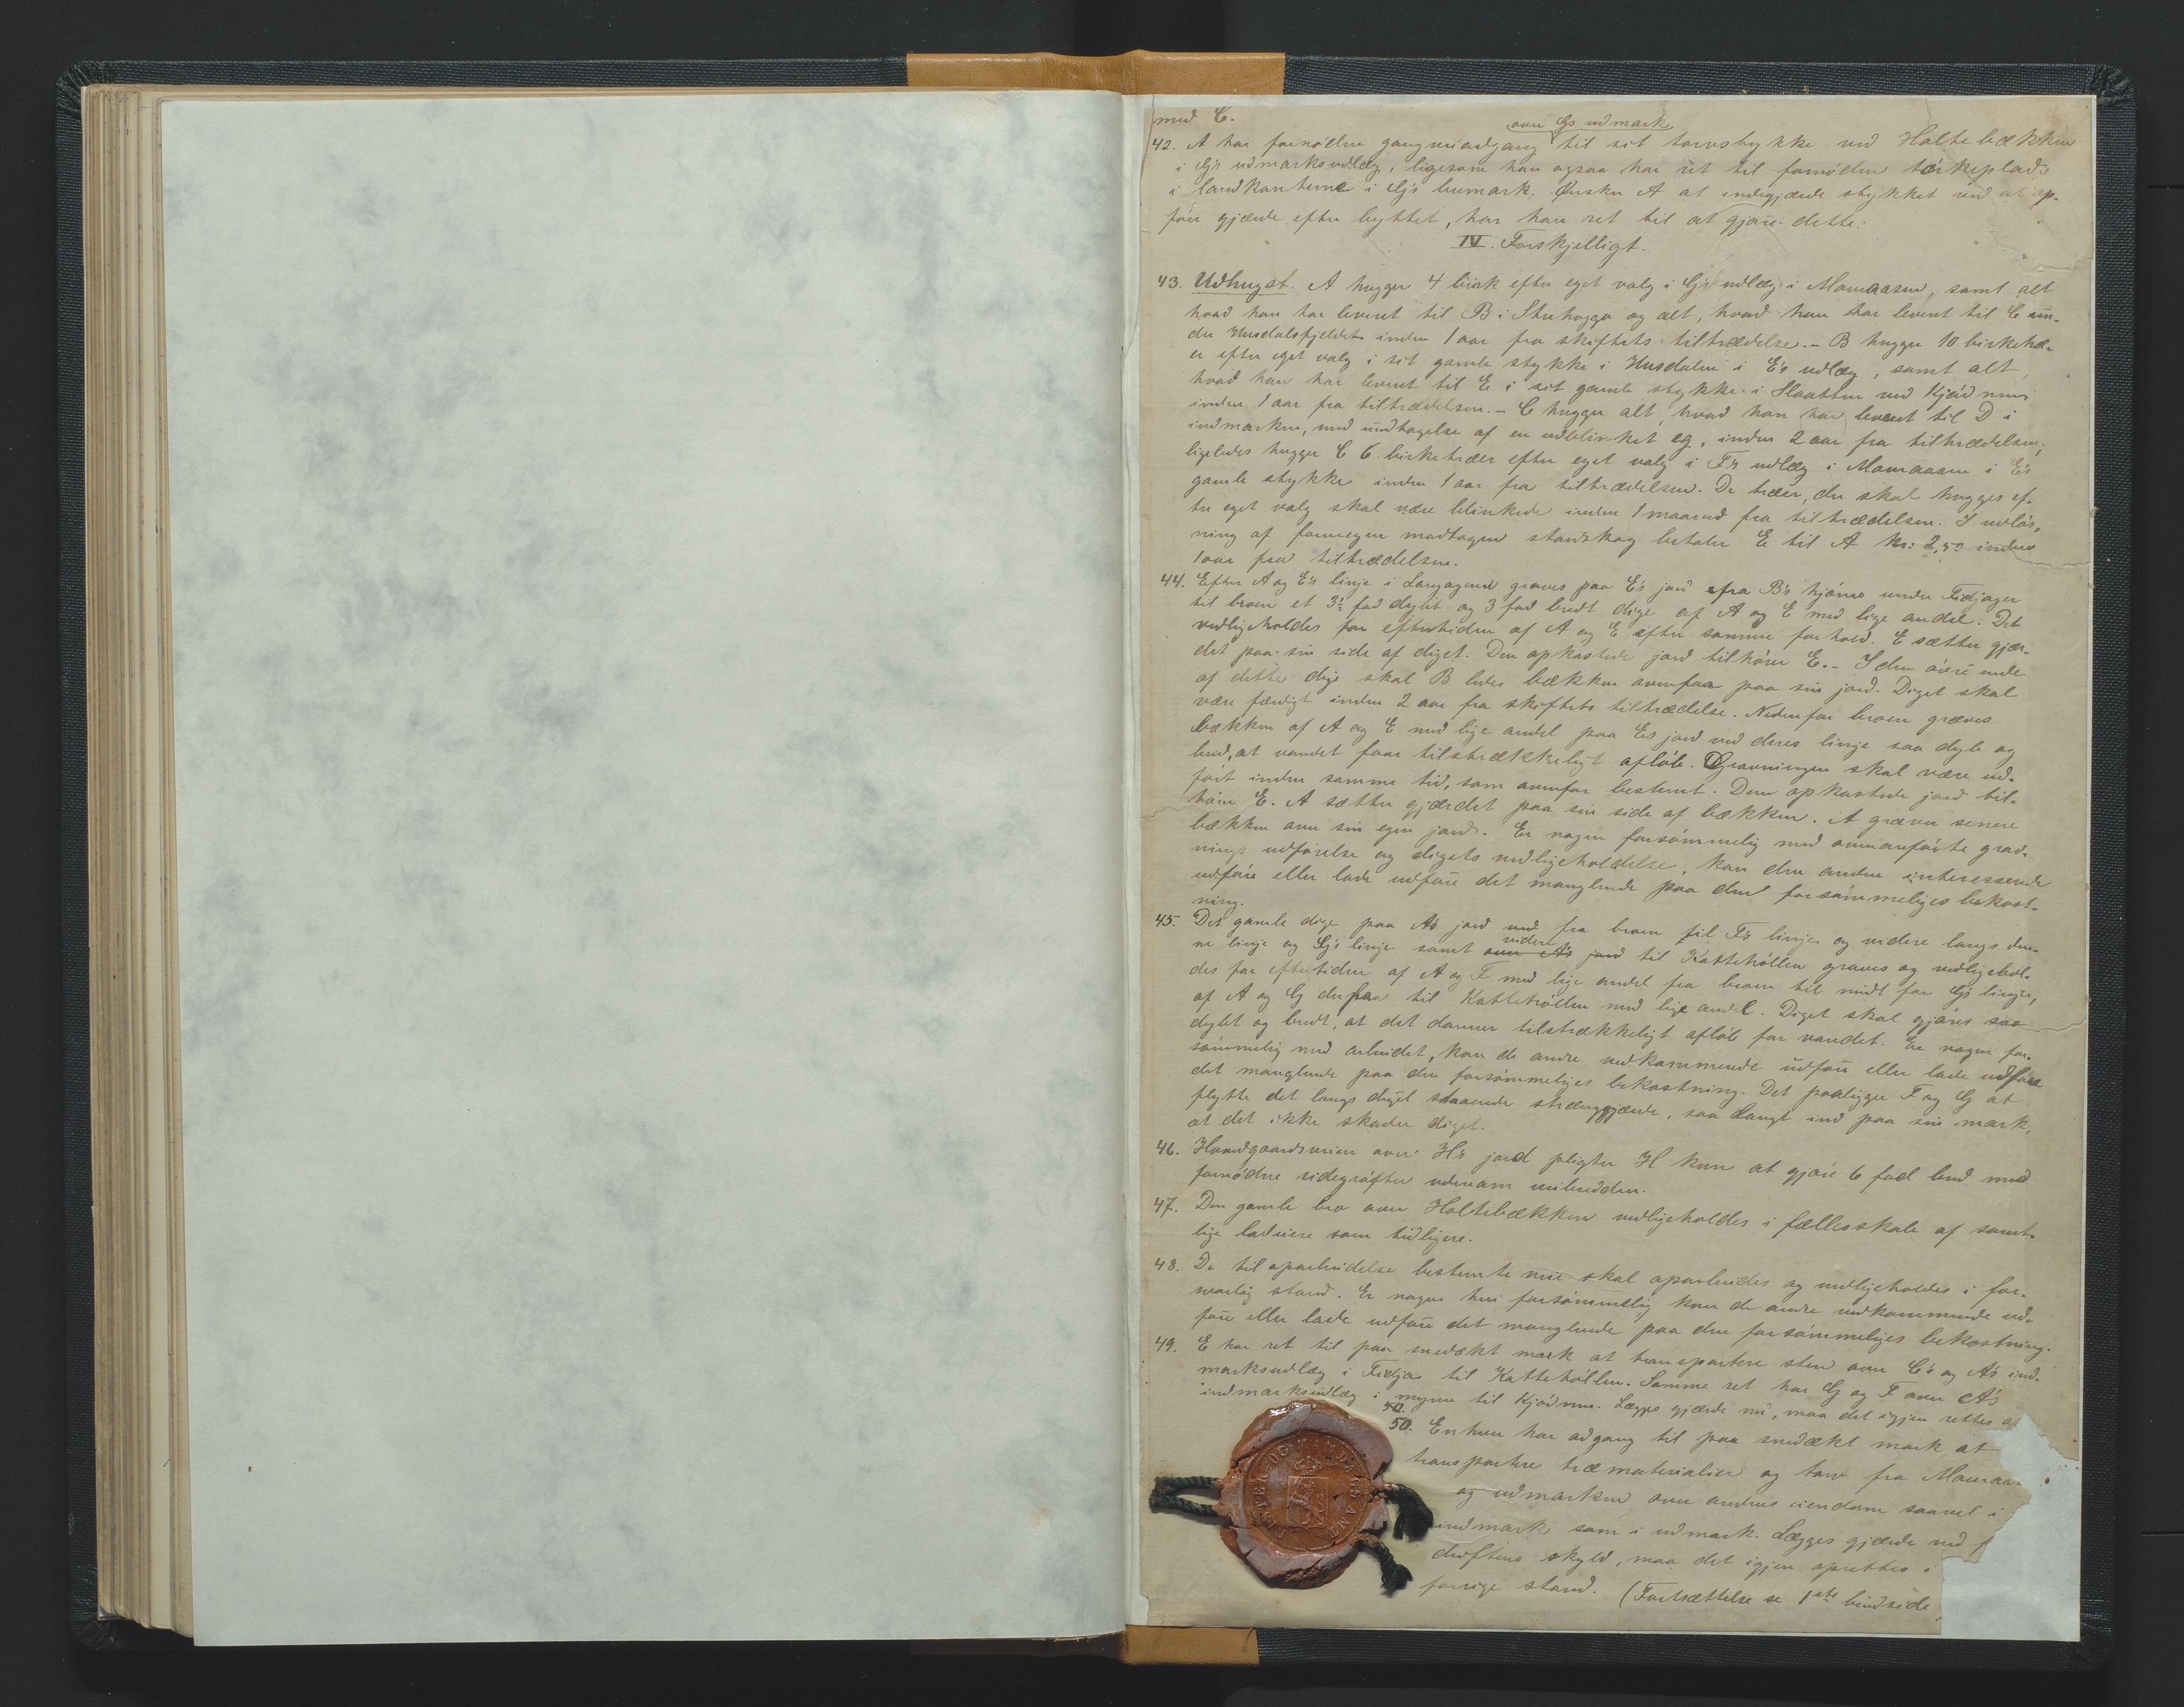 med C.
over Gs udmark
42. A har fornöden gangveiadgang til sit torvstykke ved Holtebækken
i G's udmarksudlæg, ligesom han ogsaa har ret til fornöden törkeplads
i landkanterne i G's bumark. Ønsker A at indgjærde stykket ved at op-
före gjærde efter byttet, har han ret til at gjöre dette.
IV. Forskjelligt.
43. Udhugst. A hugger 4 birk efter eget valg i G's udlæg i Mauraasen, samt alt
hvad han har leveret til B i Stuhogga og alt, hvad han har levert til C un-
der Husdalsfjeldet inden 1 aar fra skiftets tiltrædelse. - B hugger 10 birketræ-
er efter eget valg i sit gamle stykke i Husdalen i E's udlæg, samt alt,
hvad han har leveret til E i sit gamle stykke i Haatten ved Kjödnen
inden 1 aar fra tiltrædelsen. - C hugger alt, hvad han har leveret til D i
indmarken, med undtagelse af en udblinket eg, inden 2 aar fra tiltrædelsen;
ligeledes hugger C 6 birketræer efter eget valg i F's udlæg i Mauraasen i E's
gamle stykke inden 1 aar fra tiltrædelsen. De træer, der skal hugges ef-
ter eget valg skal være blinkede inden 1 maaned fra tiltrædelsen. I udlös-
ning af forinegen modtagen standskog betaler E til A Kr: 2,50 inden
1 aar fra tiltrædelsen.
44. Efter A og E's linje i Langagend graves paa E's jord fra B's hjörne under Fidjager
til broen et 3½ fod dybt og 3 fod bredt dige af A og E med lige andel. Det
vedligeholdes for eftertiden af A og E efter samme forhold. E sætter gjær-
det paa sin side af diget. Den opkastede jord tilhörer E. - I den övre ende
af dette dige skal B lede bækken ovenfra paa sin jord. Diget skal
være færdigt inden 2 aar fra skiftets tiltrædelse. Nedenfor broen graves
bækken af A og E med lige andel paa Es jord ved deres linje saa dyb og
bred, at vandet faar tilstrækkeligt aflöb. Gravningen skal være ud-
fört inden samme tid, som ovenfor bestemt. Den opkastede jord til-
hörer E. A sætter gjærdet paa sin side af bækken. A graver senere
bækken over sin egen jord. Er nogen forsömmelig med ovenanförte grav-
nings udförelse og digets vedligeholdelse, kan den anden interessende
udföre eller lade udföre det manglende paa den forsömmeliges bekost-
ning.
45. Det gamle dige paa As jord ned fra broen til F's linje og videre langs den-
ne linje og G's linje samt over A's jord videre til Kattehöllen graves og vedligehol-
des for eftertiden af A og F med lige andel fra broen til midt for G's linje,
af A og G derfra til Kattehöllen med lige andel. Diget skal gjöres saa
dybt og bredt, at det danner tilstrækkeligt aflöb for vandet. Er nogen for-
sömmelig med arbeidet, kan de andre vedkommende udföre eller lade udföre
det manglende paa den forsömmeliges bekostning. Det paaligger F og G at
flytte det langs diget staaende strænggjærde, saa langt ind paa sin mark,
at det ikke skader diget.
46. Hovedgaardsveien over H's jord pligter H kun at gjöre 6 fod bred med
fornödne sidegröfter udenom veibredden.
47. Den gamle bro over Holtebækken vedligeholdes i fællesskab af samt-
lige lodeiere som tidligere.
48. De til oparbeidelse bestemte veie skal oparbeides og vedligeholdes i for-
svarlig stand. Er nogen heri forsömmelig kan de andre vedkommende ud-
före eller lade udföre det manglende paa den forsömmeliges bekostning.
49. E har ret til paa snedækt mark at transportere sten over C's og A's ind-
marksudlæg i Fidja til Kattehöllen. Samme ret har G og F over A's
indmarksudlæg i myren til Kjödnen. Lægges gjærde ned, maa det igjen rettes op
50.
50. Enhver har adgang til paa snedækt mark at
transportere træmaterialier og torv fra Mauraas
og udmarken over andres eiendom saavel i
indmark som i udmark. Lægges gjærde ned f
driftens skyld, maa det igjen oprettes i
forrige stand. (Fortsættelse se 1ste bindside